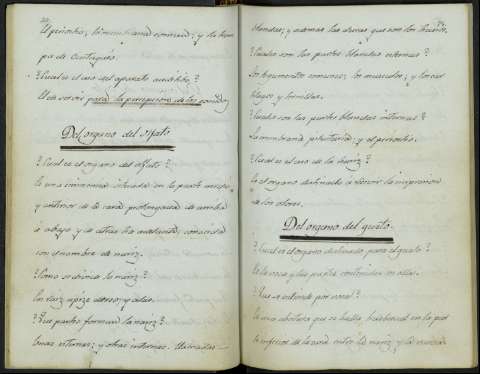 El periostio, la membrana comun; y la trom
pa de Eustaquio.
¿Cual es el uso del aparato auditibo?
El es servir para la percepcion de los sonidos
Del organo del olfato.
¿Cual es el organo del olfato?
Es una eminencia situada en la parte media
y anterior de la cara prolongada de arriba
a abajo y de atras ha adelante, conocida
con el nombre de nariz.
¿Como se divide la nariz?
En raiz, apice, dorso, y alas.
¿Que partes forman la nariz?
Unas internas; y otras internas.
blandas; y ademas las duras que son los huesos.
¿Cuales son las partes blandas externas?
Los tegumentos comunes, los musculos, y
¿Cuales son las partes blandas internas?
La membrana pituitaria; y el periostio.
¿Cual es el uso de la nariz?
Es el organo destinado a recivir la impresion
de los olores.
Del organo del gusto.
¿Cual es el organo destinado para el gusto?
Es la voca y las partes contenidas en ellas.
¿Que se entiende por voca?
Es una abertura que se halla trasbersal en la par
te inferior de la cara entre la nariz y la